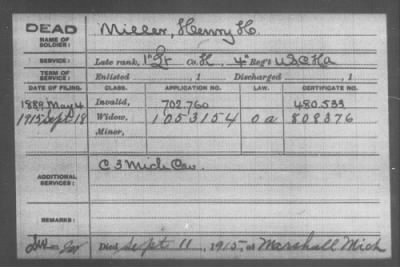 DEAD
NAME OF SOLDIER: Miller, Henry H.
SERVICE: Late rank, 1" Lt Co. H, 4" Reg't U S C H A
TERM OF SERVICE: Enlisted , 1 Discharged , 1
DATE OF FILING. CLASS. APPLICATION NO. LAW. CERTIFICATE NO.
1889 May 4 Invalid, 702,760 480.533
1915 Sept 18 Widow, 1053154 o a 808376
Minor,
ADDITIONAL SERVICES: C 3 Mich Cav.
REMARKS:
Died Sept 11, 1915, at Marshall Mich